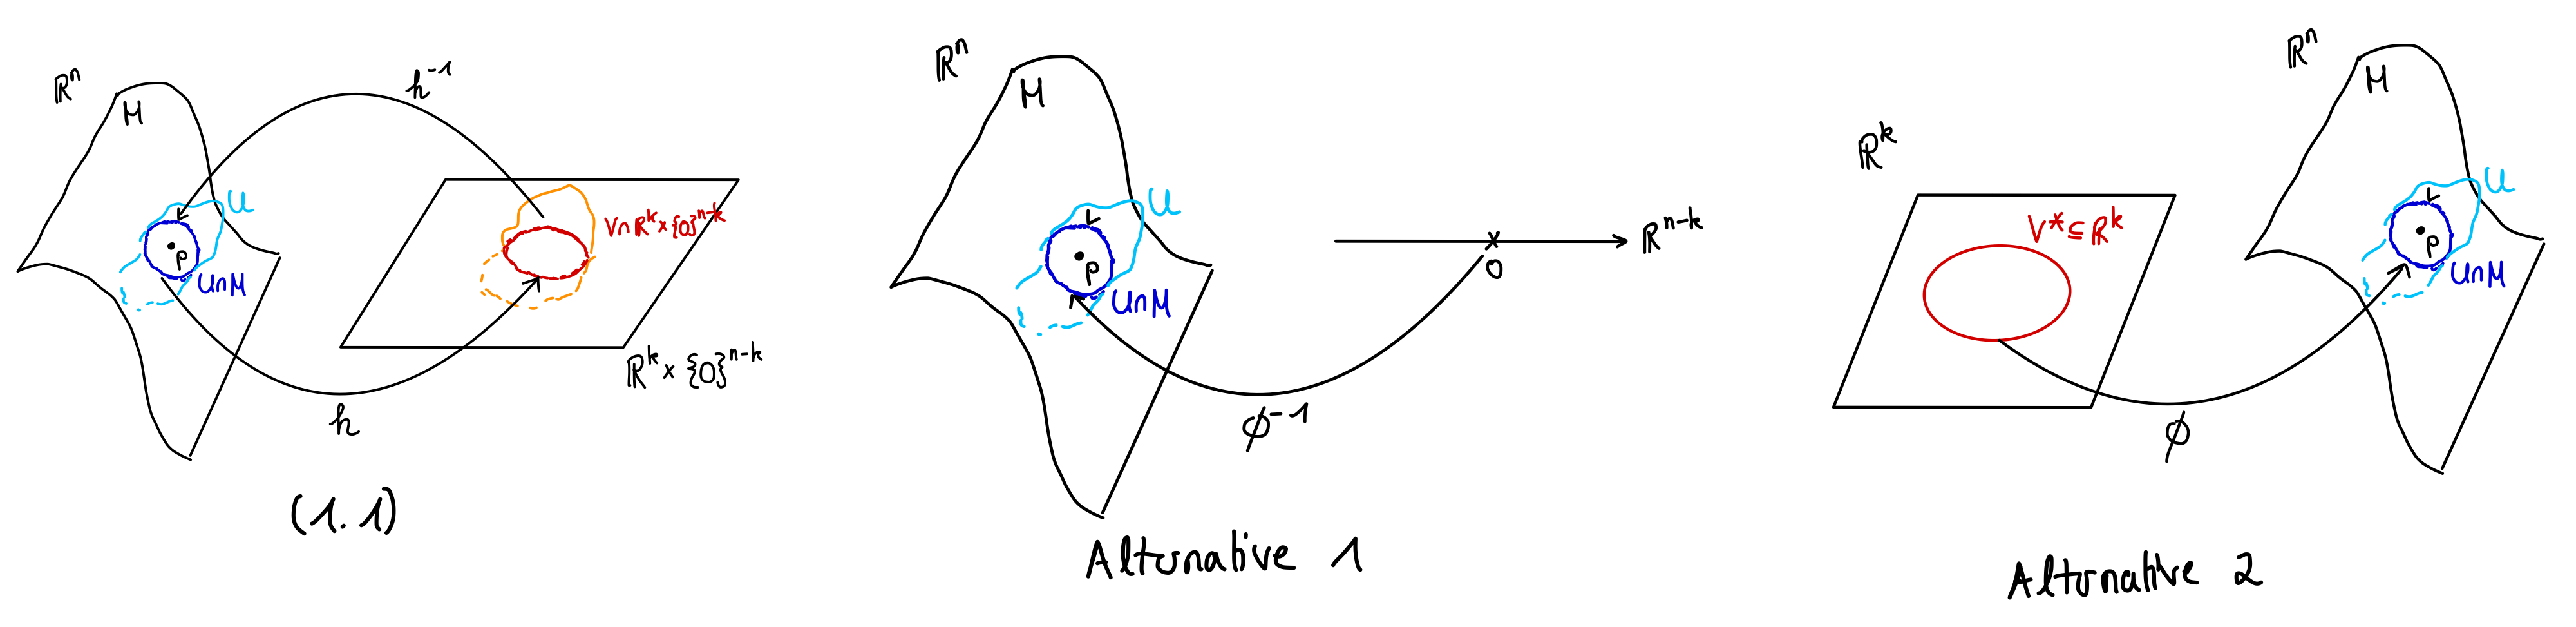 ℝⁿ
M
h⁻¹
U
p
U∩M
V∩ℝᵏ×{0}ⁿ⁻ᵏ
ℝᵏ×{0}ⁿ⁻ᵏ
h
(1.1)
ℝⁿ
M
U
p
U∩M
0
ℝⁿ⁻ᵏ
ϕ⁻¹
Alternative 1
ℝᵏ
V*⊆ℝᵏ
ϕ
ℝⁿ
M
U
p
U∩M
Alternative 2